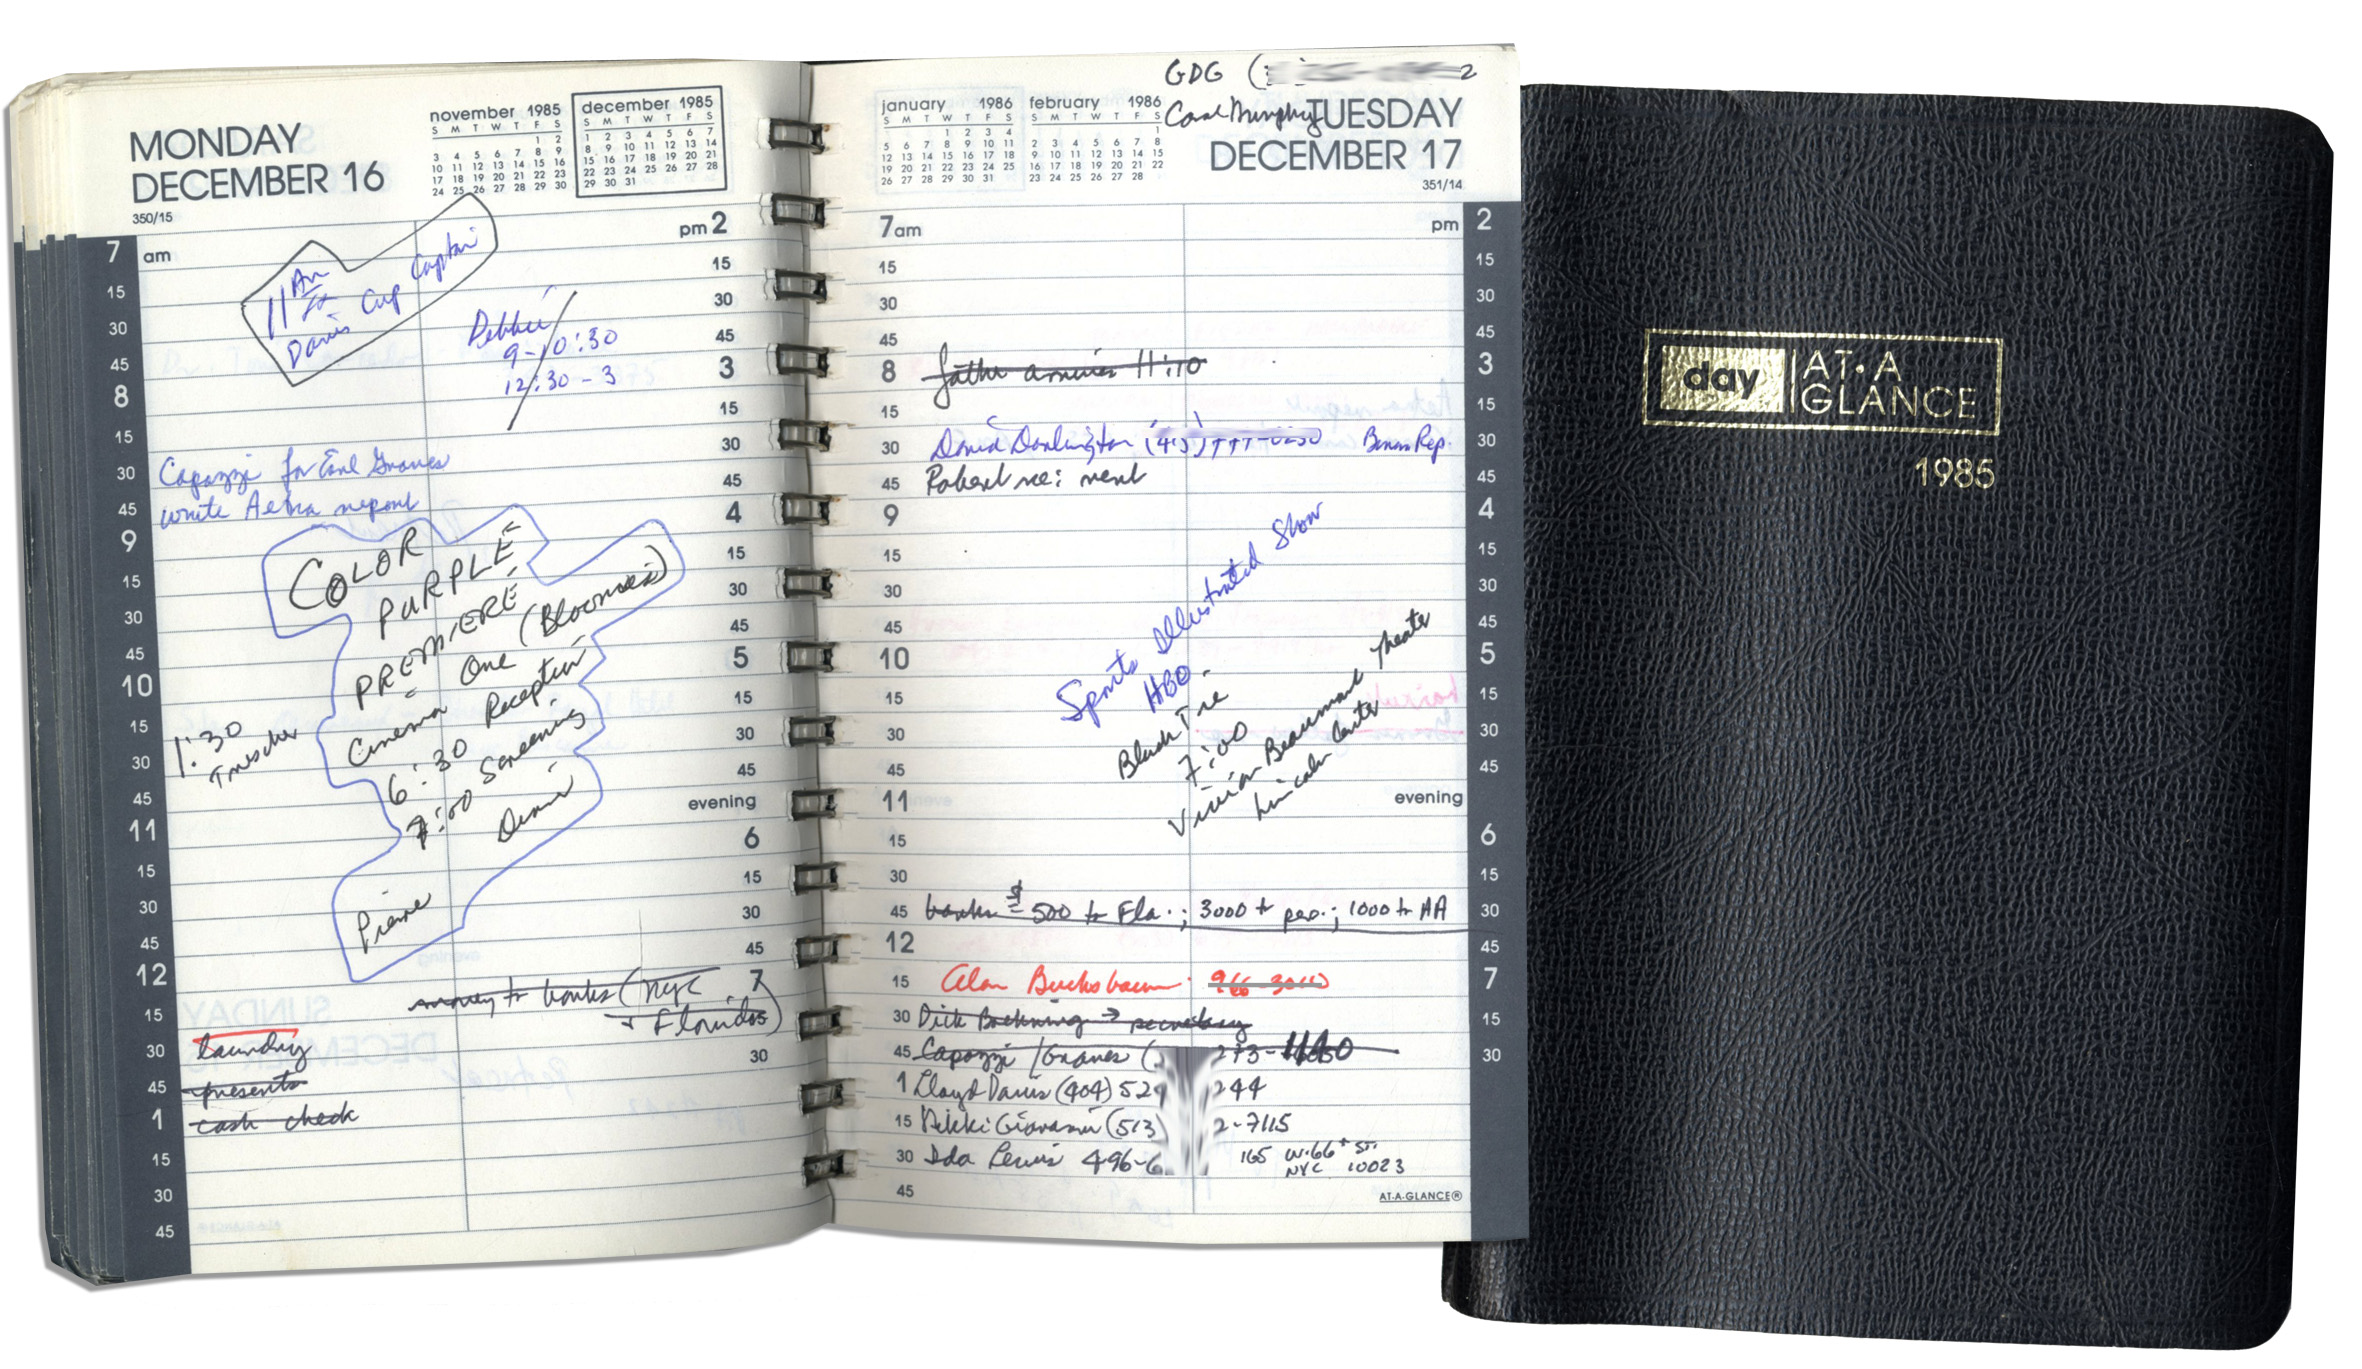 MONDAY
DECEMBER 16
350/15
november 1985
S M T W T F S
1 2
3 4 5 6 7 8 9
10 11 12 13 14 15 16
17 18 19 20 21 22 23
24 25 26 27 28 29 30
december 1985
S M T W T F S
1 2 3 4 5 6 7
8 9 10 11 12 13 14
15 16 17 18 19 20 21
22 23 24 25 26 27 28
29 30 31
7 am
15
30
45
8
15
30
45
9
15
30
45
10
15
30
45
11
15
30
45
12
15
30
45
1
15
30
45
pm 2
15
30
45
3
15
30
45
4
15
30
45
5
15
30
45
evening
6
15
30
45
7
30
11 AM
Davis Cup Captain
Debbie
9-10:30
12:30-3
Capozzi for Earl Graves
write Aetna report
COLOR
PURPLE
PREMIERE
Cinema One (Bloomies)
6:30 Reception
7:00 Screening
Pierre
1:30
money to banks (NYC
+ Florida)
laundry
presents
cash check
january 1986
S M T W T F S
1 2 3 4
5 6 7 8 9 10 11
12 13 14 15 16 17 18
19 20 21 22 23 24 25
26 27 28 29 30 31
february 1986
S M T W T F S
1
2 3 4 5 6 7 8
9 10 11 12 13 14 15
16 17 18 19 20 21 22
23 24 25 26 27 28
GDG (
2
Carol Murphy
TUESDAY
DECEMBER 17
351/14
7am
15
30
45
8
15
30
45
9
15
30
45
10
15
30
45
11
15
30
45
12
15
30
45
1
15
30
45
pm 2
15
30
45
3
15
30
45
4
15
30
45
5
15
30
45
evening
6
15
30
45
7
15
30
father arrives 11:10
David Darlington (415)
Robert re: rent
Sports Illustrated Show
HBO
Black Tie
7:00
Vivian Beaumont Theater
Lincoln Center
banks - $500 to Fla.; 3000 to per.; 1000 to AA
Alan Buchsbaum
Capozzi/Graves (
273-
Lloyd Davis (404) 529
244
Nikki Giovanni (513)
2-7115
Ida Lewis 496-6
165 W. 66th St.
NYC 10023
AT-A-GLANCE®
day
AT·A
GLANCE
1985